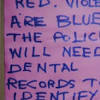 RED. VIOLE
ARE BLUE
THE POLIC
WILL NEED
DENTAL
RECORDS T
IDENTIFY